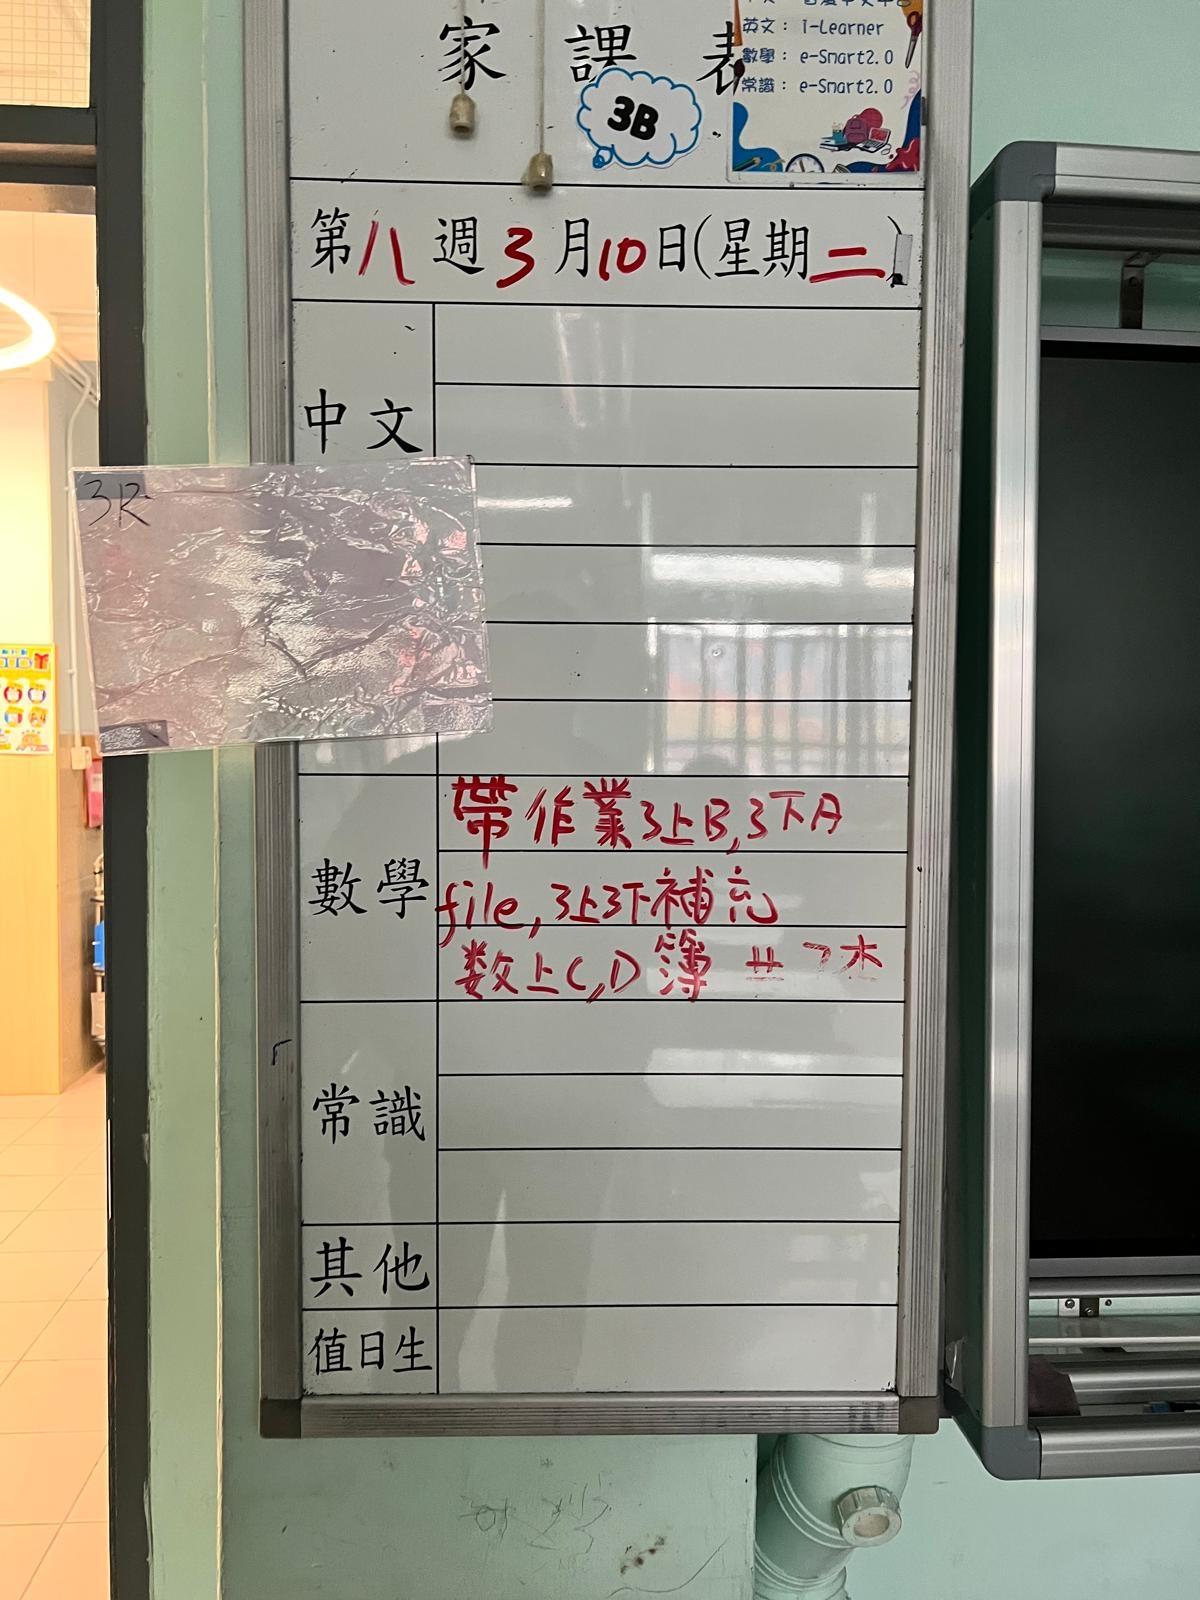 家課表
英文： i-Learner
數學： e-Smart2.0
常識： e-Smart2.0
3B
第八週3月10日(星期二)
中文
3R
數學
帶作業3上B,3下A
file,3上3下補充
数上C,D簿 共7本
常識
其他
值日生